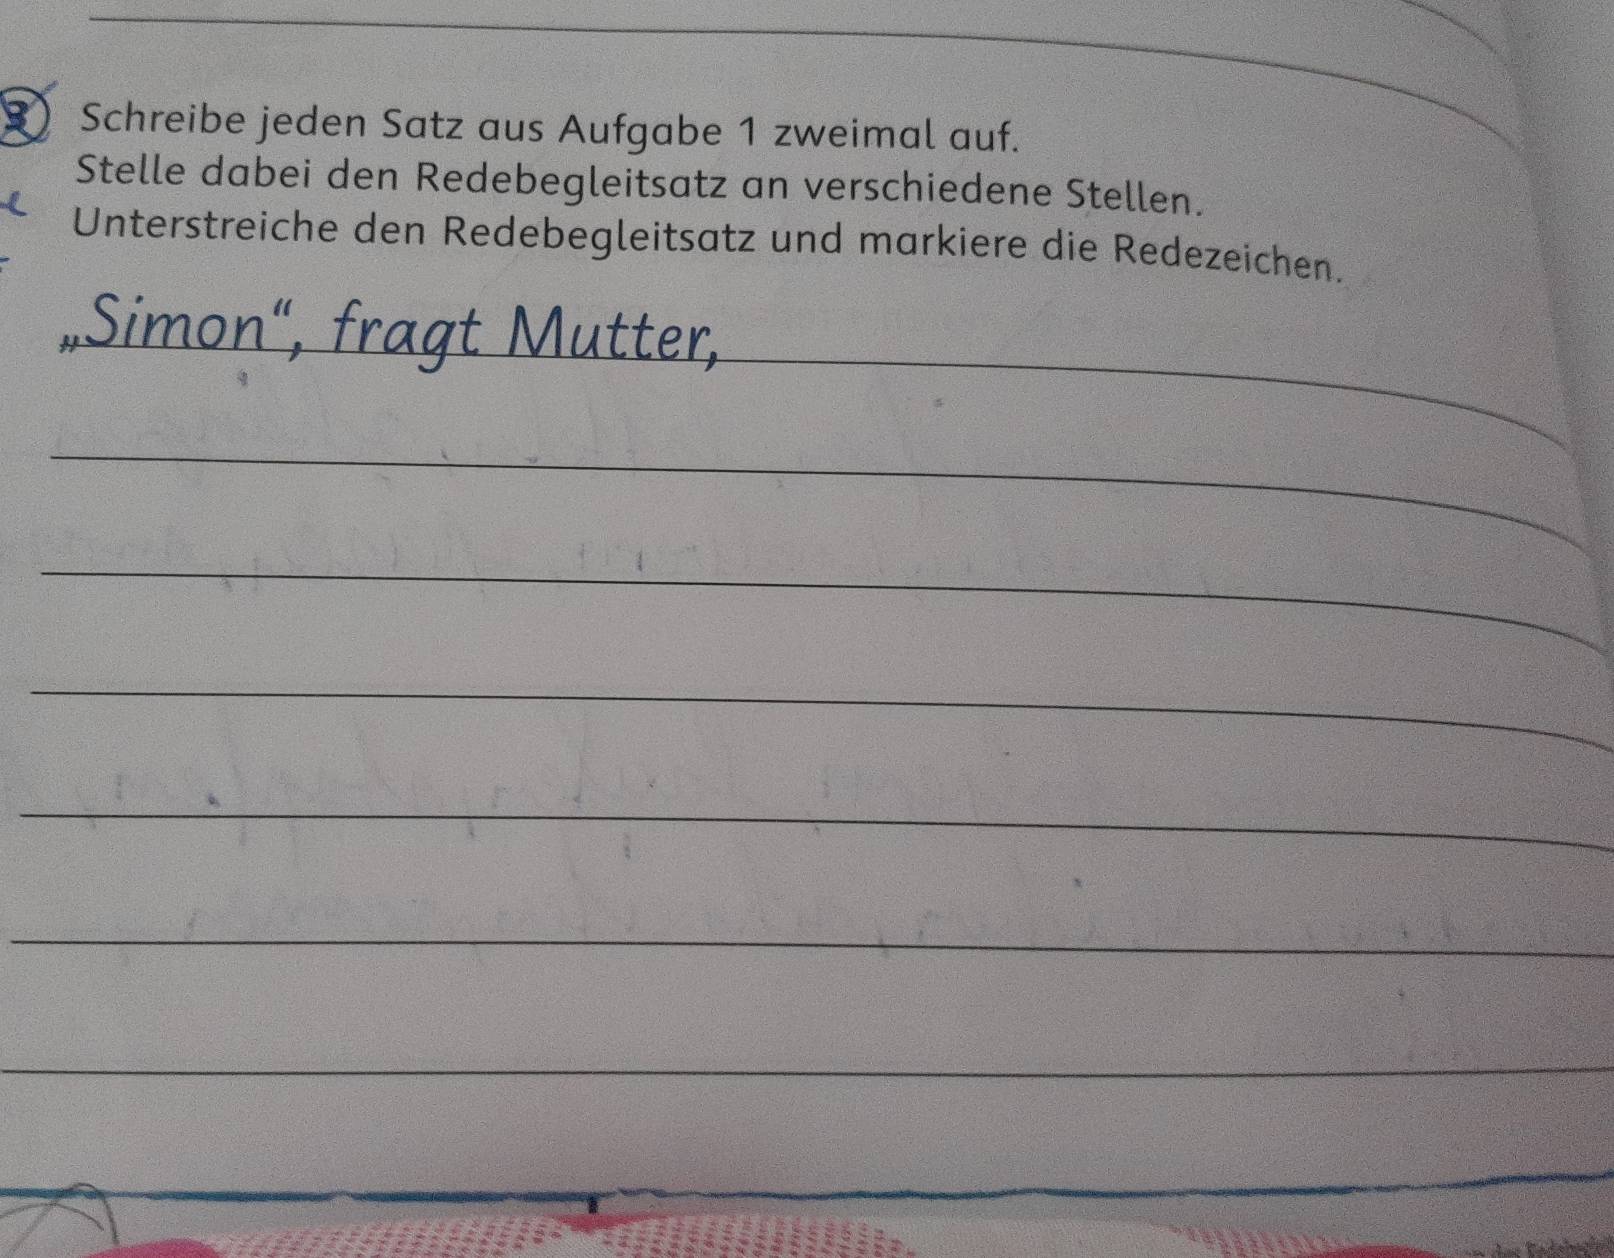 3 Schreibe jeden Satz aus Aufgabe 1 zweimal auf.
Stelle dabei den Redebegleitsatz an verschiedene Stellen.
Unterstreiche den Redebegleitsatz und markiere die Redezeichen.
„Simon“, fragt Mutter,